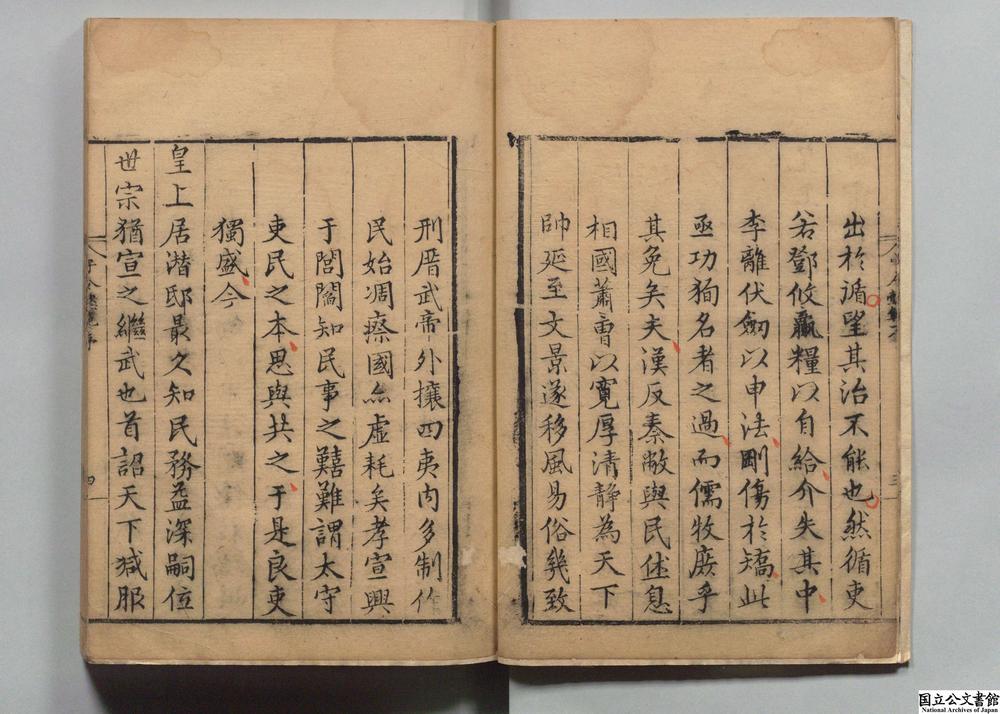 出於循望其治不能也然循吏
若鄧攸羸糧以自給介失其中
李離伏劒以申法剛傷於矯此
亟功狥名者之過而儒牧庶乎
其免矣夫漢反秦敝與民休息
相國蕭曹以寛厚清靜為天下
帥延至文景遂移風易俗幾致
刑厝武帝外攘四夷内多制作
民始凋瘵國亦虚耗矣孝宣興
于閭閻知民事之囏難謂太守
吏民之本思與共之于是良吏
獨盛今
皇上居潜邸最久知民務益深嗣位
世宗猶宣之繼武也首詔天下減服
四
国立公文書館
National Archives of Japan